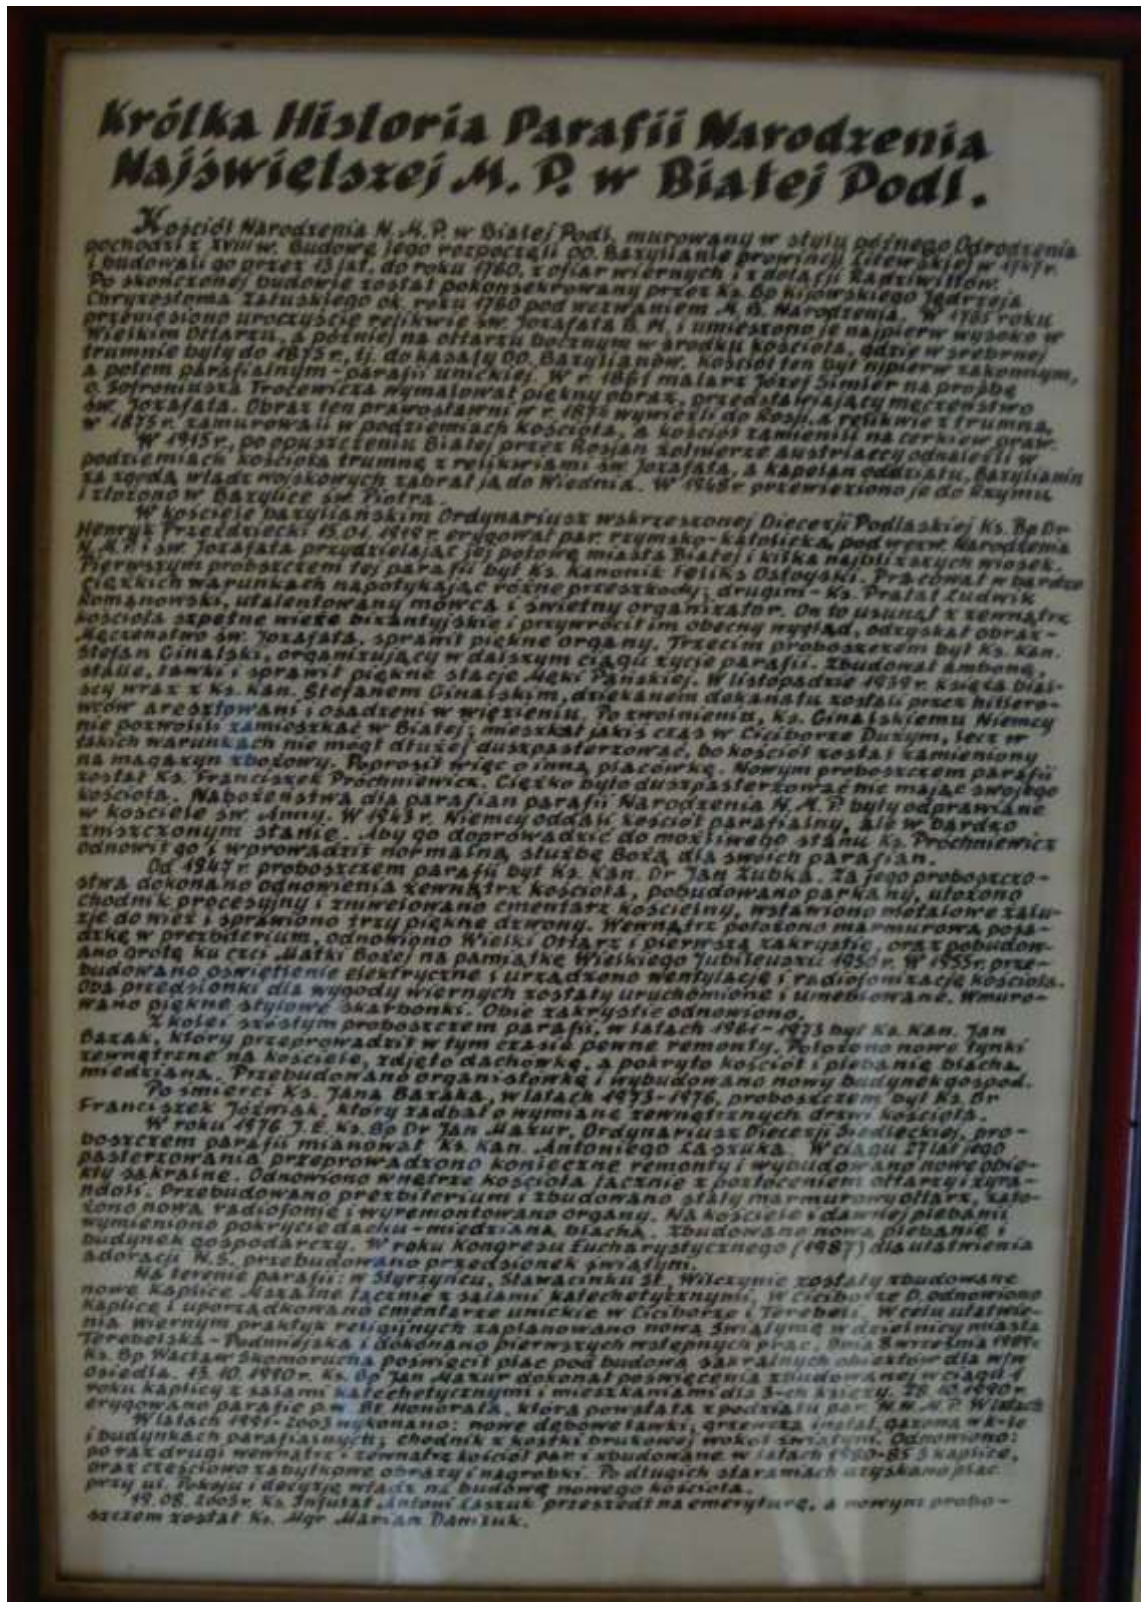 Krótka Historia Parafii Narodzenia
Najświętszej M. P. w Białej Podl.
Kościół Narodzenia N. M. P. w Białej Podl. murowany w stylu późnego Odrodzenia
pochodzi z XVIII w. Budowę jego rozpoczęli OO. Bazylianie prowincji Litewskiej w 1747 r.
i budowali go przez 13 lat, do roku 1760, z ofiar wiernych i z dotacji Radziwiłłów.
Po skończonej budowie został pokonsekrowany przez Ks. Bp Kijowskiego Jędrzeja
Chryzostoma Załuskiego ok. roku 1760 pod wezwaniem M. B. Narodzenia. W 1765 roku
przeniesiono uroczyście relikwie św. Jozafata B. M. i umieszono je najpierw wysoko w
Wielkim Ołtarzu, a później na ołtarzu bocznym w środku kościoła, gdzie w srebrnej
trumnie były do 1873 r., tj. do kasaty OO. Bazylianów. Kościół ten był njpierw zakonnym,
a potem parafialnym - parafii unickiej. W r. 1861 malarz Józef Simler na prośbę
o. Sofroniusza Trocewicza wymalował piękny obraz, przedstawiający męczeństwo
św. Jozafata. Obraz ten prawosławni w r. 1874 wywieźli do Rosji, a relikwie z trumną
w 1875 r. zamurowali w podziemiach kościoła, a kościół zamienili na cerkiew praw.
W 1915 r., po opuszczeniu Białej przez Rosjan żołnierze austriaccy odnaleźli w
podziemiach kościoła trumnę z relikwiami św. Jozafata, a kapelan oddziału, Bazylianin
za zgodą władz wojskowych zabrał ją do Wiednia. W 1948 r. przewieziono je do Rzymu
i złożono w Bazylice św. Piotra.
W kościele bazyliańskim Ordynariusz wskrzeszonej Diecezji Podlaskiej Ks. Bp Dr
Henryk Przeździecki 15.01.1919 r. erygował par. rzymsko-katolicką, pod wezw. Narodzenia
N. M. P. i św. Jozafata przydzielając jej połowę miasta Białej i kilka najbliższych wiosek.
Pierwszym proboszczem tej parafii był Ks. Kanonik Feliks Ostoyski. Pracował w bardzo
ciężkich warunkach napotykając różne przeszkody; drugim - Ks. Prałat Ludwik
Romanowski, utalentowany mówca i świetny organizator. On to usunął z zewnątrz
kościoła szpetne wieże bizantyjskie i przywrócił im obecny wygląd, odzyskał obraz -
Męczeństwo św. Jozafata, sprawił piękne organy. Trzecim proboszczem był Ks. Kan.
Stefan Ginalski, organizujący w dalszym ciągu życie parafii. Zbudował ambonę,
stalle, ławki i sprawił piękne stacje Męki Pańskiej. W listopadzie 1939 r. księża bial-
scy wraz z Ks. Kan. Stefanem Ginalskim, dziekanem dekanatu zostali przez hitlero-
wców aresztowani i osadzeni w więzieniu. Po zwolnieniu, Ks. Ginalskiemu Niemcy
nie pozwolili zamieszkać w Białej; mieszkał jakiś czas w Ciciborze Dużym, lecz w
takich warunkach nie mógł dłużej duszpasterzować, bo kościół został zamieniony
na magazyn zbożowy. Poprosił więc o inną placówkę. Nowym proboszczem parafii
został Ks. Franciszek Próchniewicz. Ciężko było duszpasterzować nie mając swojego
kościoła. Nabożeństwa dla parafian parafii Narodzenia N. M. P. były odprawiane
w kościele św. Anny. W 1943 r. Niemcy oddali kościół parafialny, ale w bardzo
zniszczonym stanie. Aby go doprowadzić do możliwego stanu Ks. Próchniewicz
odnowił go i wprowadził normalną służbę Bożą dla swoich parafian.
Od 1947 r. proboszczem parafii był Ks. Kan. Dr Jan Zubka. Za jego proboszczo-
stwa dokonano odnowienia zewnątrz kościoła, pobudowano parkany, ułożono
chodnik procesyjny i zniwelowano cmentarz kościelny, wstawiono metalowe żalu-
zje do wież i sprawiono trzy piękne dzwony. Wewnątrz położono marmurową posa-
dzkę w prezbiterium, odnowiono Wielki Ołtarz i pierwszą zakrystię, oraz pobudow-
ano grotę ku czci Matki Bożej na pamiątkę Wielkiego Jubileuszu 1950 r. W 1955 r. prze-
budowano oświetlenie elektryczne i urządzono wentylację i radiofonizację kościoła.
Oba przedsionki dla wygody wiernych zostały uruchomione i umeblowane. Wmuro-
wano piękne stylowe skarbonki. Obie zakrystie odnowiono.
Z kolei szóstym proboszczem parafii, w latach 1961-1973 był Ks. Kan. Jan
Bazak, który przeprowadził w tym czasie pewne remonty. Położono nowe tynki
zewnętrzne na kościele, zdjęto dachówkę, a pokryto kościół i plebanię blachą
miedzianą. Przebudowano organistówkę i wybudowano nowy budynek gospod.
Po śmierci Ks. Jana Bazaka, w latach 1973-1976, proboszczem był Ks. Dr
Franciszek Jóźwiak, który zadbał o wymianę zewnętrznych drzwi kościoła.
W roku 1976 J. E. Ks. Bp Dr Jan Mazur, Ordynariusz Diecezji Siedleckiej, pro-
boszczem parafii mianował Ks. Kan. Antoniego Laszuka. W ciągu 27 lat jego
pasterzowania przeprowadzono konieczne remonty i wybudowano nowe obie-
kty sakralne. Odnowiono wnętrze kościoła łącznie z pozłoceniem ołtarzy i żyra-
ndoli. Przebudowano prezbiterium i zbudowano stały marmurowy ołtarz, zało-
żono nową radiofonię i wyremontowano organy. Na kościele i dawnej plebanii
wymieniono pokrycie dachu - miedzianą blachą. Zbudowano nową plebanię i
budynek gospodarczy. W roku Kongresu Eucharystycznego (1987) dla ułatwienia
adoracji N. S. przebudowano przedsionek świątyni.
Na terenie parafii: w Styrzyńcu, Sławacinku St., Wilczynie zostały zbudowane
nowe kaplice Mszalne łącznie z salami katechetycznymi, w Ciciborze D. odnowiono
kaplicę i uporządkowano cmentarze unickie w Ciciborze i Terebeli. W celu ułatwie-
nia wiernym praktyk religijnych zaplanowano nową Świątynię w dzielnicy miasta
Terebelska - Podmiejska i dokonano pierwszych wstępnych prac. Dnia 8 września 1989 r.
Ks. Bp Wacław Skomorucha poświęcił plac pod budowę sakralnych obiektów dla w/w
Osiedla. 13.10.1990 r. Ks. Bp Jan Mazur dokonał poświęcenia zbudowanej w ciągu 1
roku kaplicy z salami katechetycznymi i mieszkaniami dla 3-ch księży. 28.10.1990 r.
erygowano parafię p.w. Bł. Honorata, która powstała z podziału par. N. N. M. P. W latach
W latach 1991-2003 wykonano: nowe dębowe ławki, grzewczą instal. gazową w k-le
i budynkach parafialnych; chodnik z kostki brukowej wokół świątyni. Odnowiono:
po raz drugi wewnątrz i zewnątrz kościół par. i zbudowane w latach 1980-85 3 kaplice,
oraz częściowo zabytkowe obrazy i nagrobki. Po długich staraniach uzyskano plac
przy ul. Pokoju i decyzję władz na budowę nowego kościoła.
19.08.2003 r. Ks. Infułat Antoni Laszuk przeszedł na emeryturę, a nowym probo-
szczem został Ks. Mgr Marian Daniluk.